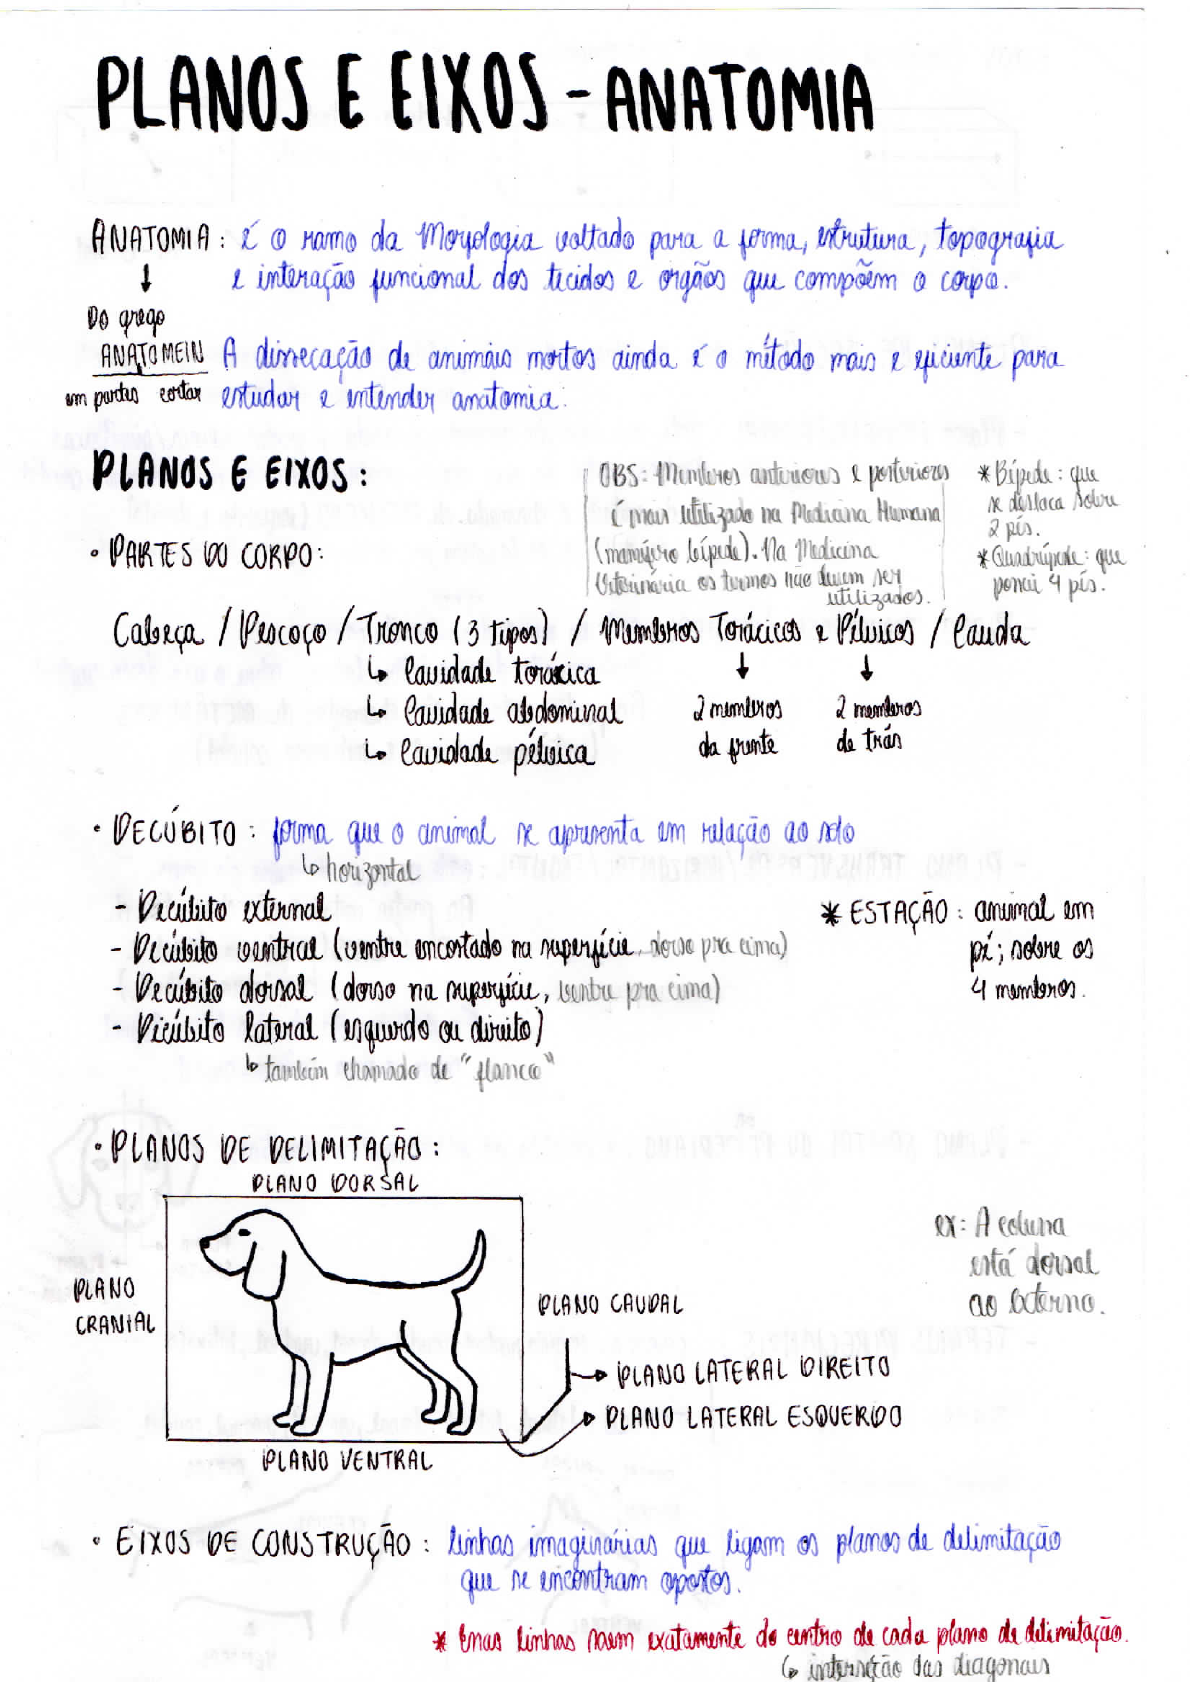 PLANOS E EIXOS - ANATOMIA
ANATOMIA: é o ramo da Morfologia voltado para a forma, estrutura, topografia
e interação funcional dos tecidos e orgãos que compõem o corpo.
Do grego
ANATOMEIN
em partes cortar
A dissecação de animais mortos ainda é o método mais eficiente para
estudar e entender anatomia.
PLANOS E EIXOS:
OBS: Membros anteriores e posteriores
é mais utilizado na Medicina Humana
(mamífero bípede). Na Medicina
Veterinária os termos não devem ser
utilizados.
* Bípede: que
se desloca sobre
2 pés.
* Quadrúpede: que
possui 4 pés.
• PARTES DO CORPO:
Cabeça / Pescoço / Tronco (3 tipos) / Membros Torácicos e Pélvicos / Cauda
↳ Cavidade torácica
↳ Cavidade abdominal
↳ Cavidade pélvica
2 membros
da frente
2 membros
de trás
• DECÚBITO: forma que o animal se apresenta em relação ao solo
↳ horizontal
- Decúbito external
- Decúbito ventral (ventre encostado na superfície, dorso pra cima)
- Decúbito dorsal (dorso na superfície, ventre pra cima)
- Decúbito lateral (esquerdo ou direito)
↳ também chamado de "flanco"
* ESTAÇÃO: animal em
pé; sobre os
4 membros.
• PLANOS DE DELIMITAÇÃO:
PLANO DORSAL
PLANO
CRANIAL
PLANO CAUDAL
PLANO LATERAL DIREITO
PLANO LATERAL ESQUERDO
PLANO VENTRAL
ex: A coluna
está dorsal
ao externo.
• EIXOS DE CONSTRUÇÃO: linhas imaginárias que ligam os planos de delimitação
que se encontram opostos.
* Essas linhas saem exatamente do centro de cada plano de delimitação.
↳ interseção das diagonais